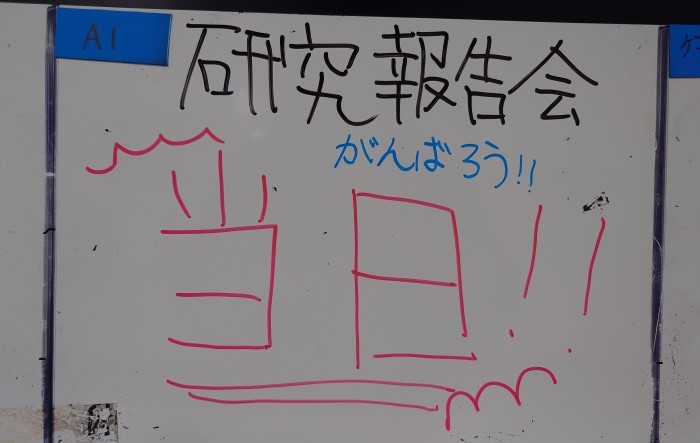 A1
研究報告会
がんばろう!!
当日!!